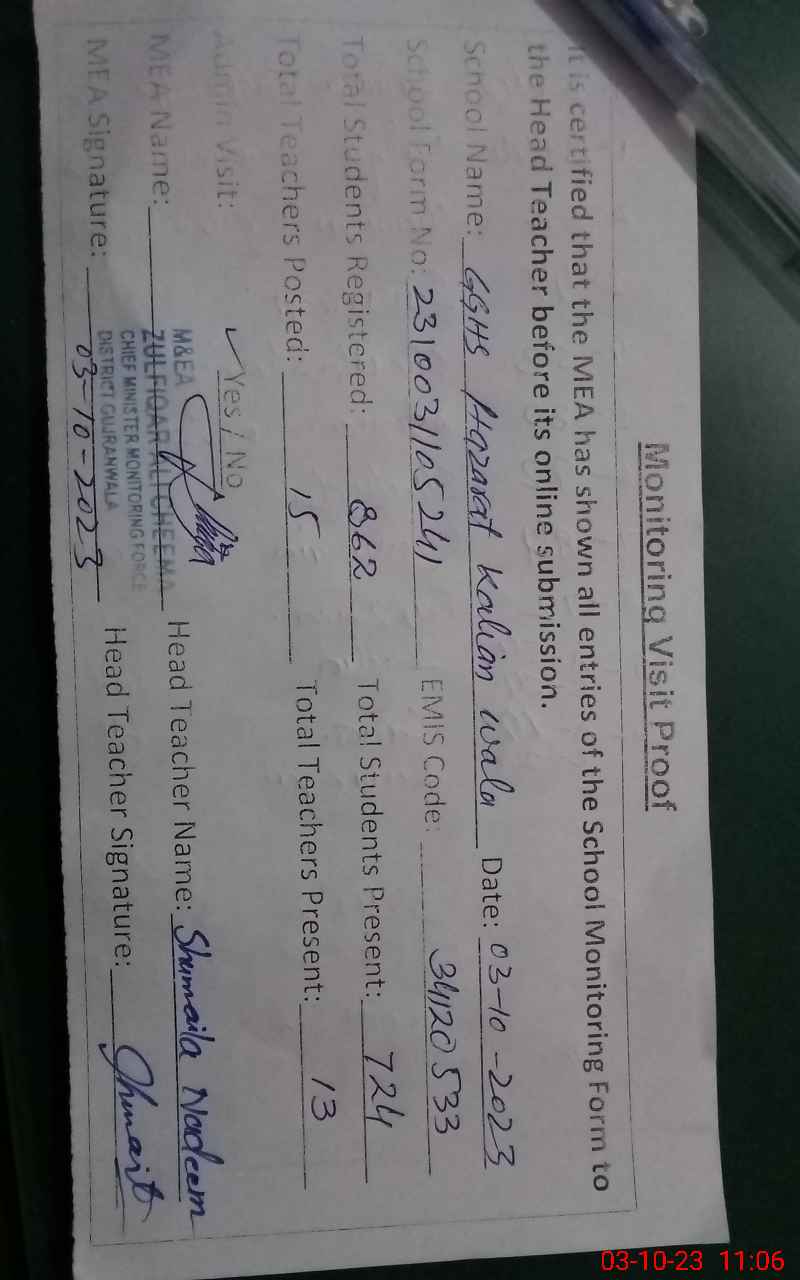 Monitoring Visit Proof
It is certified that the MEA has shown all entries of the School Monitoring Form to
the Head Teacher before its online submission.
School Name: GGHS Hazarat Kalian wala Date: 03-10-2023
School Form No: 2310031105241 EMIS Code: 34120533
Total Students Registered: 862 Total Students Present: 724
Total Teachers Posted: 15 Total Teachers Present: 13
Admin Visit: ✓ Yes / No
MEA Name: M&EA ZULFIQAR ALI CHEEMA Head Teacher Name: Shumaila Nadeem
CHIEF MINISTER MONITORING FORCE
DISTRICT GUJRANWALA
MEA Signature: 03-10-2023 Head Teacher Signature:
03-10-23 11:06